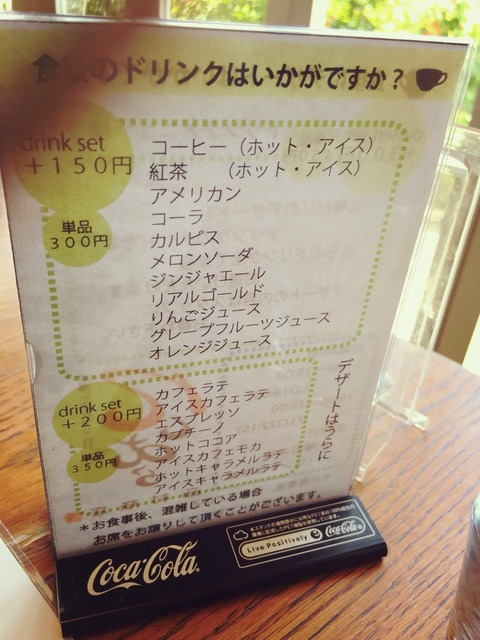 食後のドリンクはいかがですか？
drink set
＋１５０円
単品
３００円
コーヒー（ホット・アイス）
紅茶　　（ホット・アイス）
アメリカン
コーラ
カルピス
メロンソーダ
ジンジャエール
リアルゴールド
りんごジュース
グレープフルーツジュース
オレンジジュース
drink set
＋２００円
単品
３５０円
カフェラテ
アイスカフェラテ
エスプレッソ
カプチーノ
ホットココア
アイスカフェモカ
ホットキャラメルラテ
アイスキャラメルラテ
デザートはうらに
＊お食事後、混雑している場合
お席をお譲りして頂くことがございます。
Coca-Cola
Live Positively
Coca-Cola